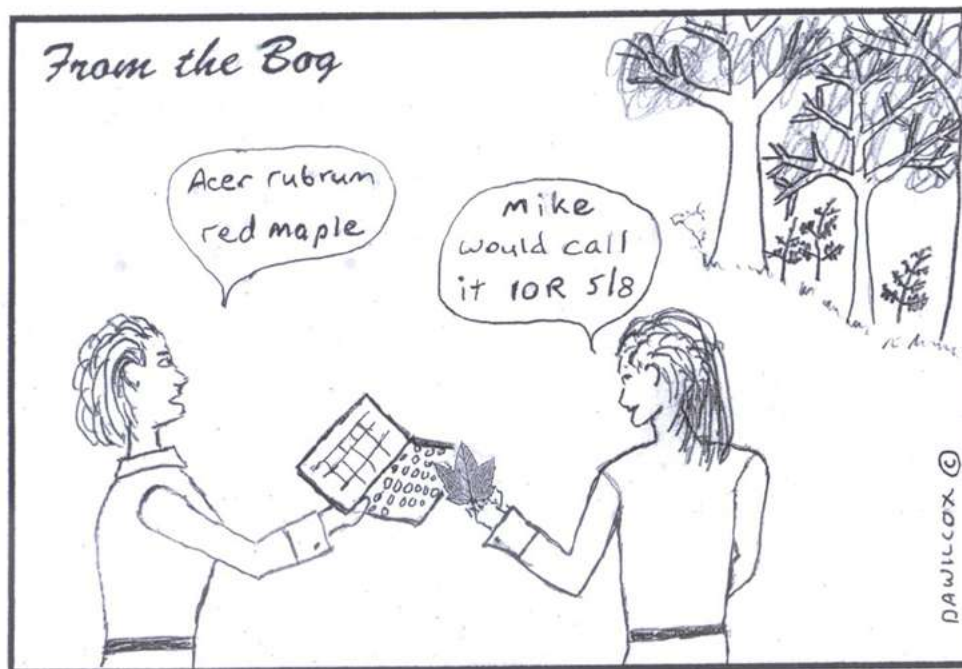 From the Bog
Acer rubrum
red maple
Mike
would call
it 10R 5/8
DAWILCOX ©